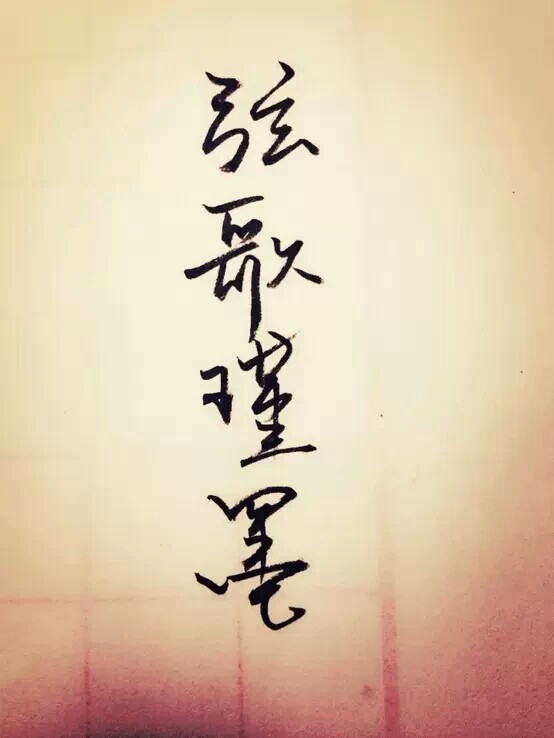 弦歌瑾墨